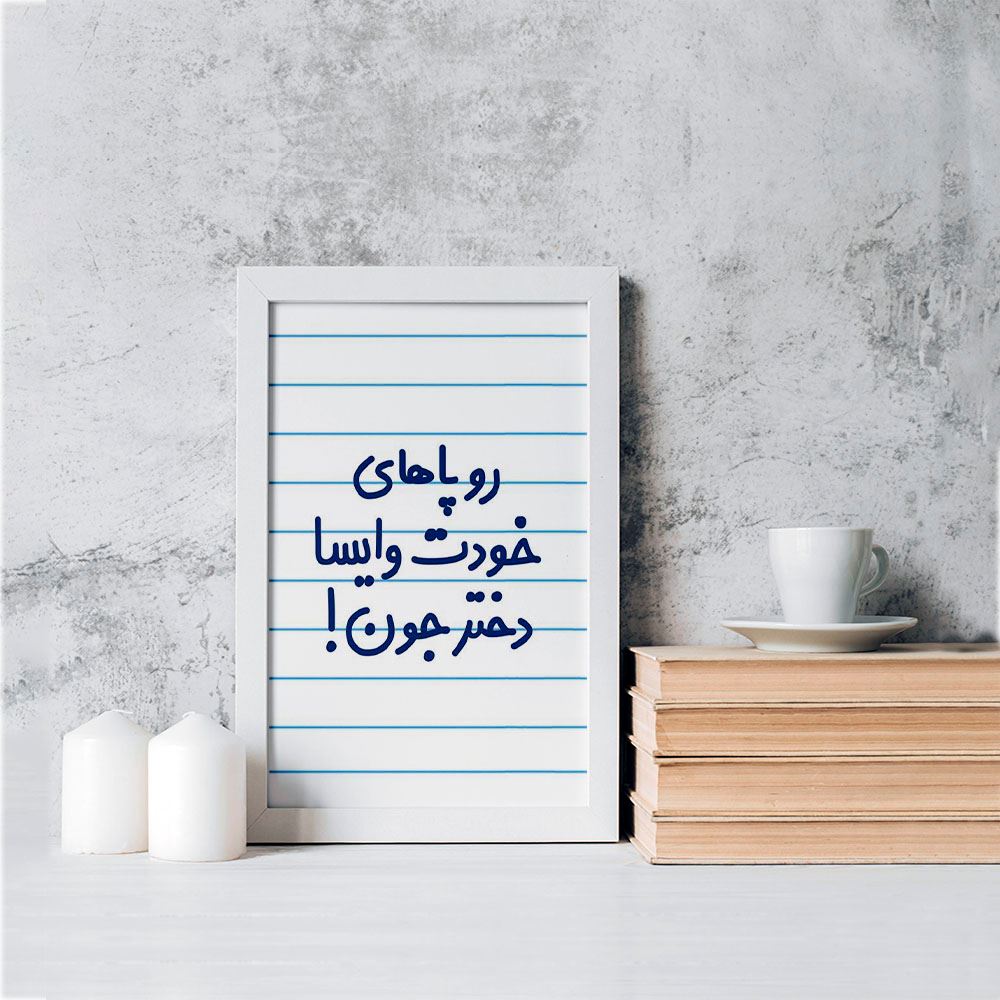 رو پاهای
خودت وایسا
دختر جون!